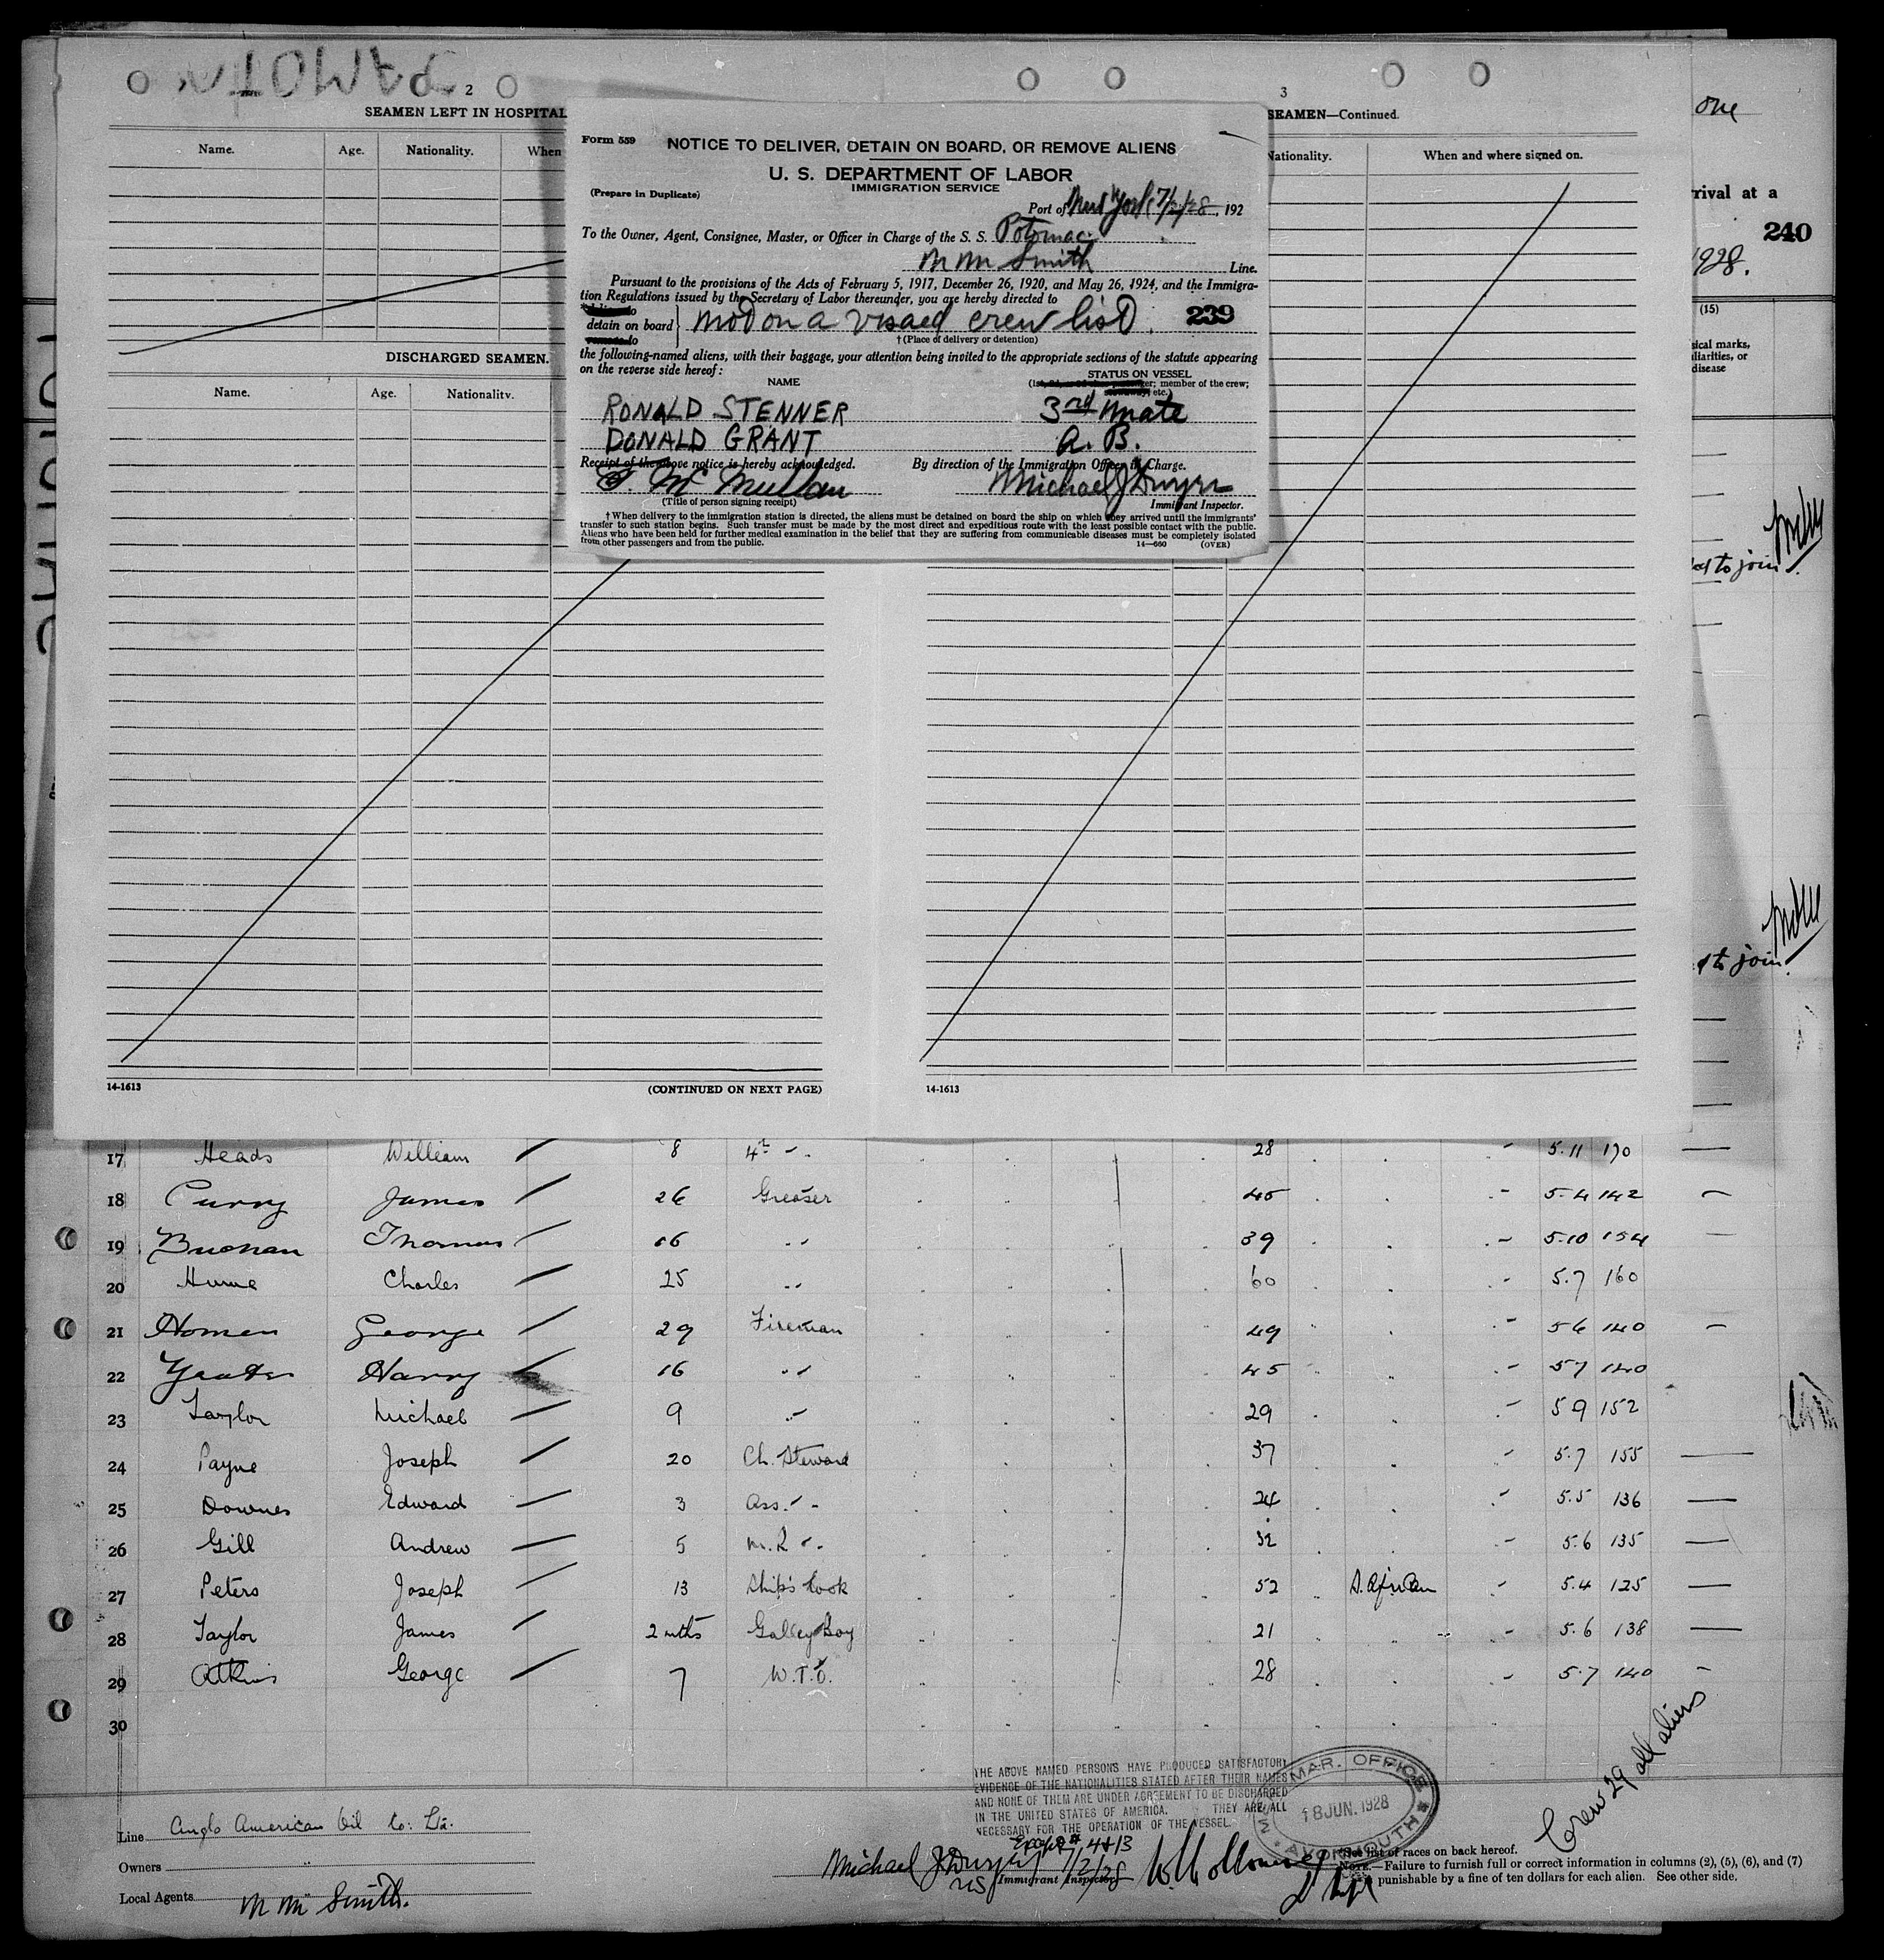 2
SEAMEN LEFT IN HOSPITAL
Name. Age. Nationality. When
DISCHARGED SEAMEN.
Name. Age. Nationality.
14-1613 (CONTINUED ON NEXT PAGE)
3
SEAMEN—Continued.
Nationality. When and where signed on.
14-1613
Form 559
NOTICE TO DELIVER, DETAIN ON BOARD, OR REMOVE ALIENS
U. S. DEPARTMENT OF LABOR
IMMIGRATION SERVICE
(Prepare in Duplicate)
Port of New York 7/2/28, 192
To the Owner, Agent, Consignee, Master, or Officer in Charge of the S. S. Potomac
M M Smith Line.
Pursuant to the provisions of the Acts of February 5, 1917, December 26, 1920, and May 26, 1924, and the Immigra-
tion Regulations issued by the Secretary of Labor thereunder, you are hereby directed to
detain on board } not on a visaed crew list. 239
† (Place of delivery or detention)
the following-named aliens, with their baggage, your attention being invited to the appropriate sections of the statute appearing
on the reverse side hereof:
NAME STATUS ON VESSEL
member of the crew;
etc.)
RONALD STENNER 3rd mate
DONALD GRANT A. B.
Receipt of the above notice is hereby acknowledged. By direction of the Immigration Officer in Charge.
McMullan Michael J Dwyer
(Title of person signing receipt) Immigrant Inspector.
† When delivery to the immigration station is directed, the aliens must be detained on board the ship on which they arrived until the immigrants'
transfer to such station begins. Such transfer must be made by the most direct and expeditious route with the least possible contact with the public.
Aliens who have been held for further medical examination in the belief that they are suffering from communicable diseases must be completely isolated
from other passengers and from the public. 14—660 (OVER)
one
rrival at a
240
1928.
(15)
sical marks,
liarities, or
disease
to join
to join
17 Heads William 8 4th 28 5.11 170
18 Curry James 26 Greaser 45 5.4 142
19 Buchan Thomas 16 39 5.10 154
20 Hume Charles 25 60 5.7 160
21 Homer George 29 Fireman 49 5 6 140
22 Harry 16 45 5 7 140
23 Taylor Michael 9 29 5 9 152
24 Payne Joseph 20 Ch. Steward 37 5.7 155
25 Downes Edward 3 Ass. 24 5.5 136
26 Gill Andrew 5 M.R 32 5.6 135
27 Peters Joseph 13 Ship's Cook 52 S. African 5.4 125
28 Taylor James 2 mths Galley Boy 21 5.6 138
29 Atkins George 7 W.T.O. 28 5.7 140
30
Crew 29 all aliens
THE ABOVE NAMED PERSONS HAVE PRODUCED SATISFACTORY
EVIDENCE OF THE NATIONALITIES STATED AFTER THEIR NAMES
AND NONE OF THEM ARE UNDER AGREEMENT TO BE DISCHARGED
IN THE UNITED STATES OF AMERICA. THEY ARE ALL
NECESSARY FOR THE OPERATION OF THE VESSEL.
MAR. OFFICE
18 JUN. 1928
AVONMOUTH
Line Anglo American Oil Co: Ltd.
Owners "
Local Agents M M Smith.
Except # 4+13
Michael J Dwyer 7/2/28
Immigrant Inspector
See list of races on back hereof.
NOTE.—Failure to furnish full or correct information in columns (2), (5), (6), and (7)
punishable by a fine of ten dollars for each alien. See other side.